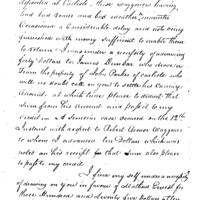 deposited at Carlisle, these waggoners having
had bad roads and bad weather, committed
Occasioned a Considerable delay and not being
furnished with money sufficient to enable them
to return I was under a necessity of advancing
forty Dollars to James Dunbar who drives a
Team the property of John Parker of Carlisle who
will no doubt call on you to settle his Carriage
Account, at which time please to deduct that
Sum from his Account and pass it to my
Credit in. A Similar case occurred on the 12th
Instant with respect to Robert Armor Waggoner
to whom I advanced ten Dollars which was
noted on his receipt for that Sum also please
to pass to my credit
I find myself under a necessity
of drawing on you in favour of
three Hundred and Seventy five Dollars at ten